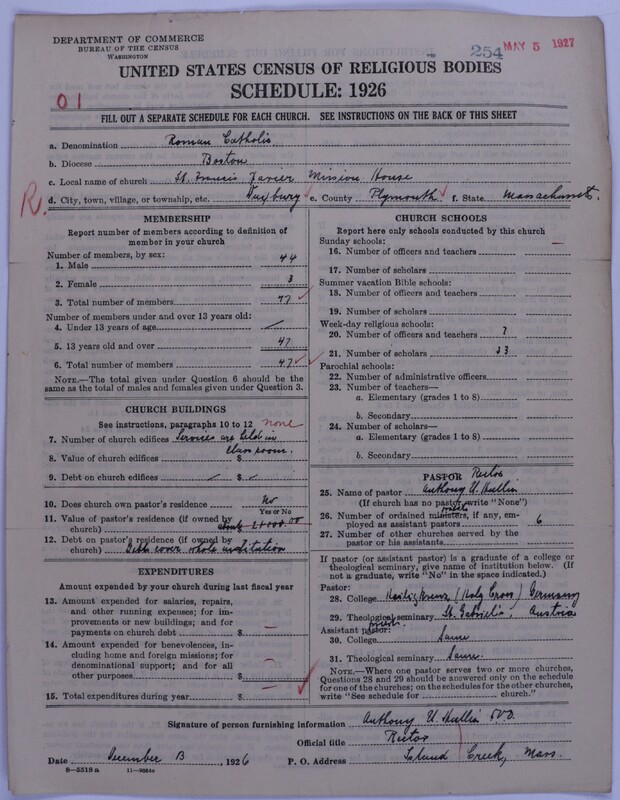 DEPARTMENT OF COMMERCE
BUREAU OF THE CENSUS
WASHINGTON
254 MAY 5 1927
UNITED STATES CENSUS OF RELIGIOUS BODIES
SCHEDULE: 1926
01
FILL OUT A SEPARATE SCHEDULE FOR EACH CHURCH. SEE INSTRUCTIONS ON THE BACK OF THIS SHEET
a. Denomination Roman Catholic
b. Diocese Boston
c. Local name of church St. Francis Xavier Mission House
R. d. City, town, village, or township, etc. Duxbury e. County Plymouth f. State Massachusetts
MEMBERSHIP
Report number of members according to definition of
member in your church
Number of members, by sex:
1. Male 44
2. Female 3
3. Total number of members 47
Number of members under and over 13 years old:
4. Under 13 years of age
5. 13 years old and over 47
6. Total number of members 47
NOTE.—The total given under Question 6 should be
the same as the total of males and females given under Question 3.
CHURCH BUILDINGS
See instructions, paragraphs 10 to 12 none
7. Number of church edifices Services are held in
class room.
8. Value of church edifices $
9. Debt on church edifices $
10. Does church own pastor's residence No
Yes or No
11. Value of pastor's residence (if owned by
church)
12. Debt on pastor's residence (if owned by
church) Debts cover whole institution
EXPENDITURES
Amount expended by your church during last fiscal year
13. Amount expended for salaries, repairs,
and other running expenses; for im-
provements or new buildings; and for
payments on church debt $ —
14. Amount expended for benevolences, in-
cluding home and foreign missions; for
denominational support; and for all
other purposes $ —
15. Total expenditures during year $ —
CHURCH SCHOOLS
Report here only schools conducted by this church
Sunday schools: —
16. Number of officers and teachers
17. Number of scholars
Summer vacation Bible schools:
18. Number of officers and teachers
19. Number of scholars
Week-day religious schools:
20. Number of officers and teachers 7
21. Number of scholars 33
Parochial schools:
22. Number of administrative officers
23. Number of teachers—
a. Elementary (grades 1 to 8)
b. Secondary
24. Number of scholars—
a. Elementary (grades 1 to 8)
b. Secondary
PASTOR Rector
25. Name of pastor Anthony U.
(If church has no pastor, write "None")
26. Number of ordained ministers, if any, em-
ployed as assistant pastors 6
27. Number of other churches served by the
pastor or his assistants
If pastor (or assistant pastor) is a graduate of a college or
theological seminary, give name of institution below. (If
not a graduate, write "No" in the space indicated.)
Pastor:
28. College (Holy Cross) Germany
29. Theological seminary St. Gabriels, Austria
Assistant pastor:
30. College Same
31. Theological seminary Same.
NOTE.—Where one pastor serves two or more churches,
Questions 28 and 29 should be answered only on the schedule
for one of the churches; on the schedules for the other churches,
write "See schedule for church."
Signature of person furnishing information Anthony U. SVD.
Official title Rector
Date December 1926 P. O. Address Island Creek, Mass.
8-5518 a